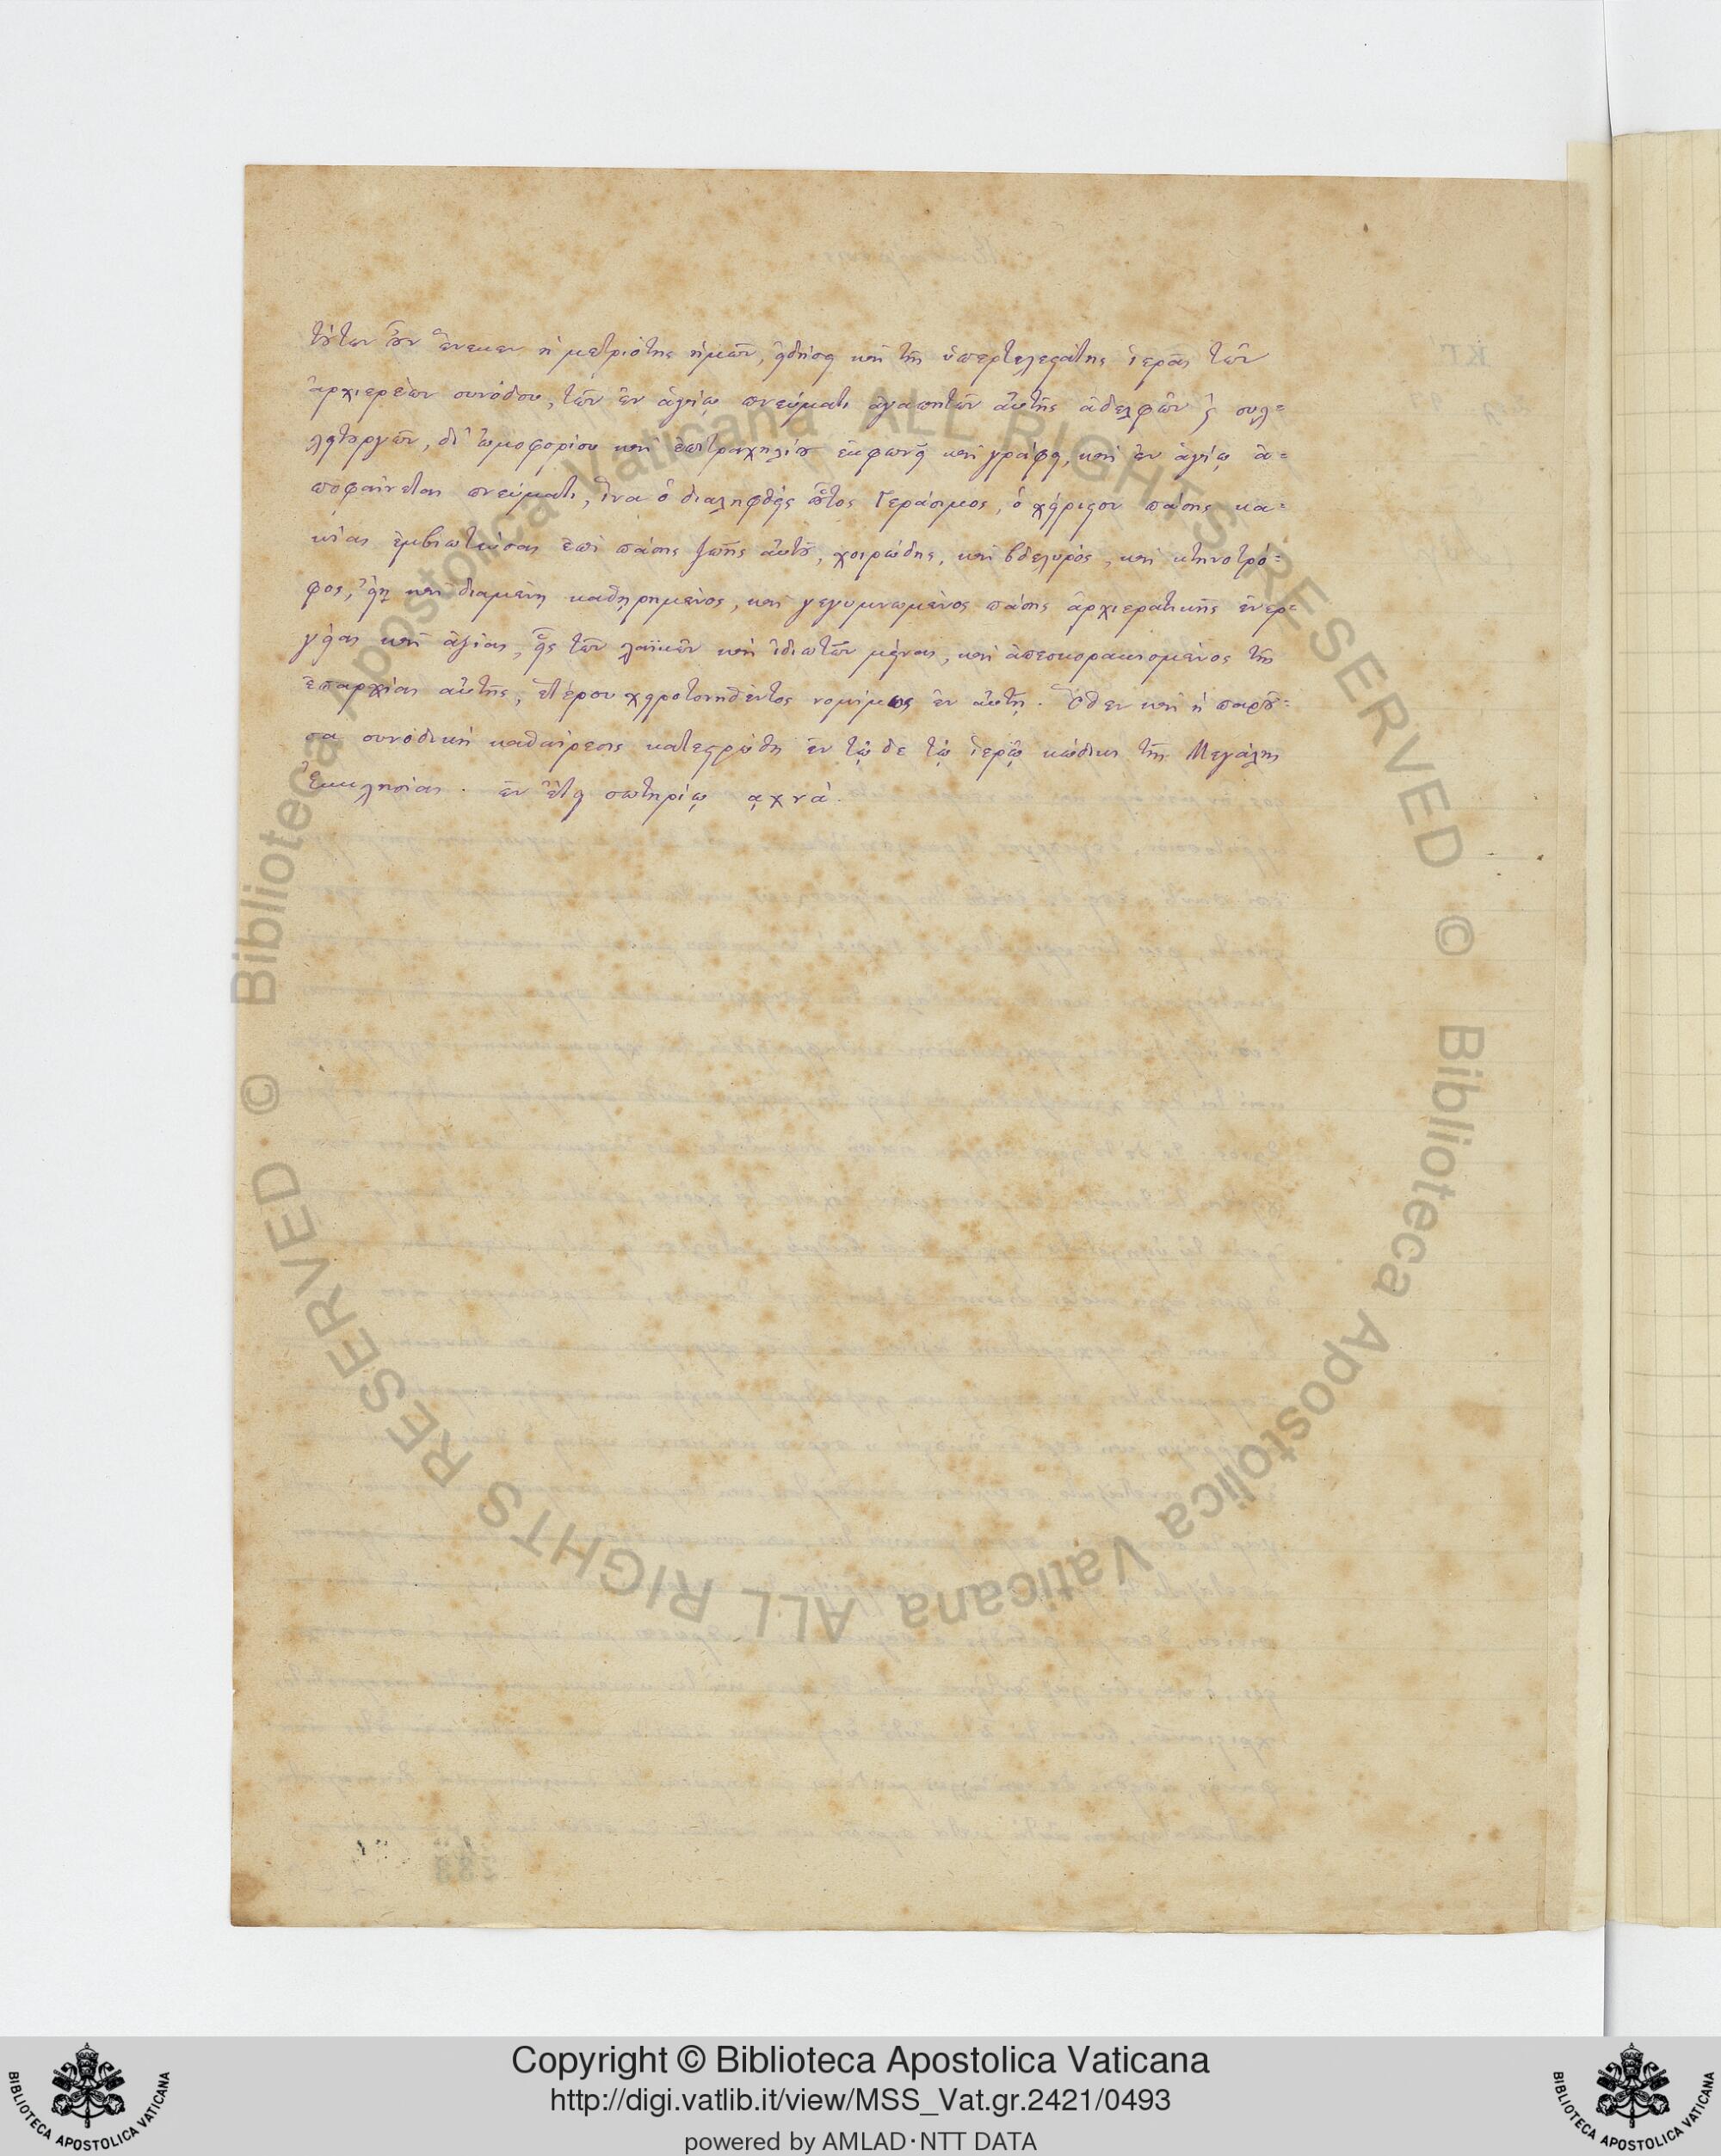 τούτων οὖν ἕνεκεν ἡ μετριότης ἡμῶν, εἰδήσει καὶ τῆς ὑπερτελεστάτης ἱερᾶς τῶν
ἀρχιερέων συνόδου, τῶν ἐν ἁγίῳ πνεύματι ἀγαπητῶν αὐτῆς ἀδελφῶν καὶ συλ=
λειτουργῶν, δι' ὠμοφορίου καὶ ἐπιτραχηλίου ἐκφωνεῖ καὶ γράφει, καὶ ἐν ἁγίῳ ἀ=
ποφαίνεται πνεύματι, ἵνα ὁ διαληφθεὶς οὗτος Γεράσιμος, ὁ χείριστον πάσης κα=
κίας ἐμβιωτεύσας ἐπὶ πάσης ζωῆς αὐτοῦ, χοιρώδης, καὶ βδελυρὸς, καὶ κτηνοτρό=
φος, εἴη καὶ διαμένῃ καθῃρημένος, καὶ γεγυμνωμένος πάσης ἀρχιερατικῆς ἐνερ=
γείας καὶ ἀξίας, εἷς τῶν λαϊκῶν καὶ ἰδιωτῶν μείνας, καὶ ἀπεσκορακισμένος τῆς
ἐπαρχίας αὐτῆς, ἑτέρου χειροτονηθέντος νομίμως ἐν αὐτῇ. Ὅθεν καὶ ἡ παροῦ=
σα συνοδικὴ καθαίρεσις κατεστρώθη ἐν τῷ δε τῷ ἱερῷ κώδικι τῆς Μεγάλης
Ἐκκλησίας. ἐν ἔτει σωτηρίῳ ͵αχνά.
© Biblioteca Apostolica Vaticana ALL RIGHTS RESERVED © Biblioteca Apostolica Vaticana ALL RIGHTS RESERVED
Copyright © Biblioteca Apostolica Vaticana
http://digi.vatlib.it/view/MSS_Vat.gr.2421/0493
powered by AMLAD·NTT DATA
BIBLIOTECA APOSTOLICA VATICANA
BIBLIOTECA APOSTOLICA VATICANA